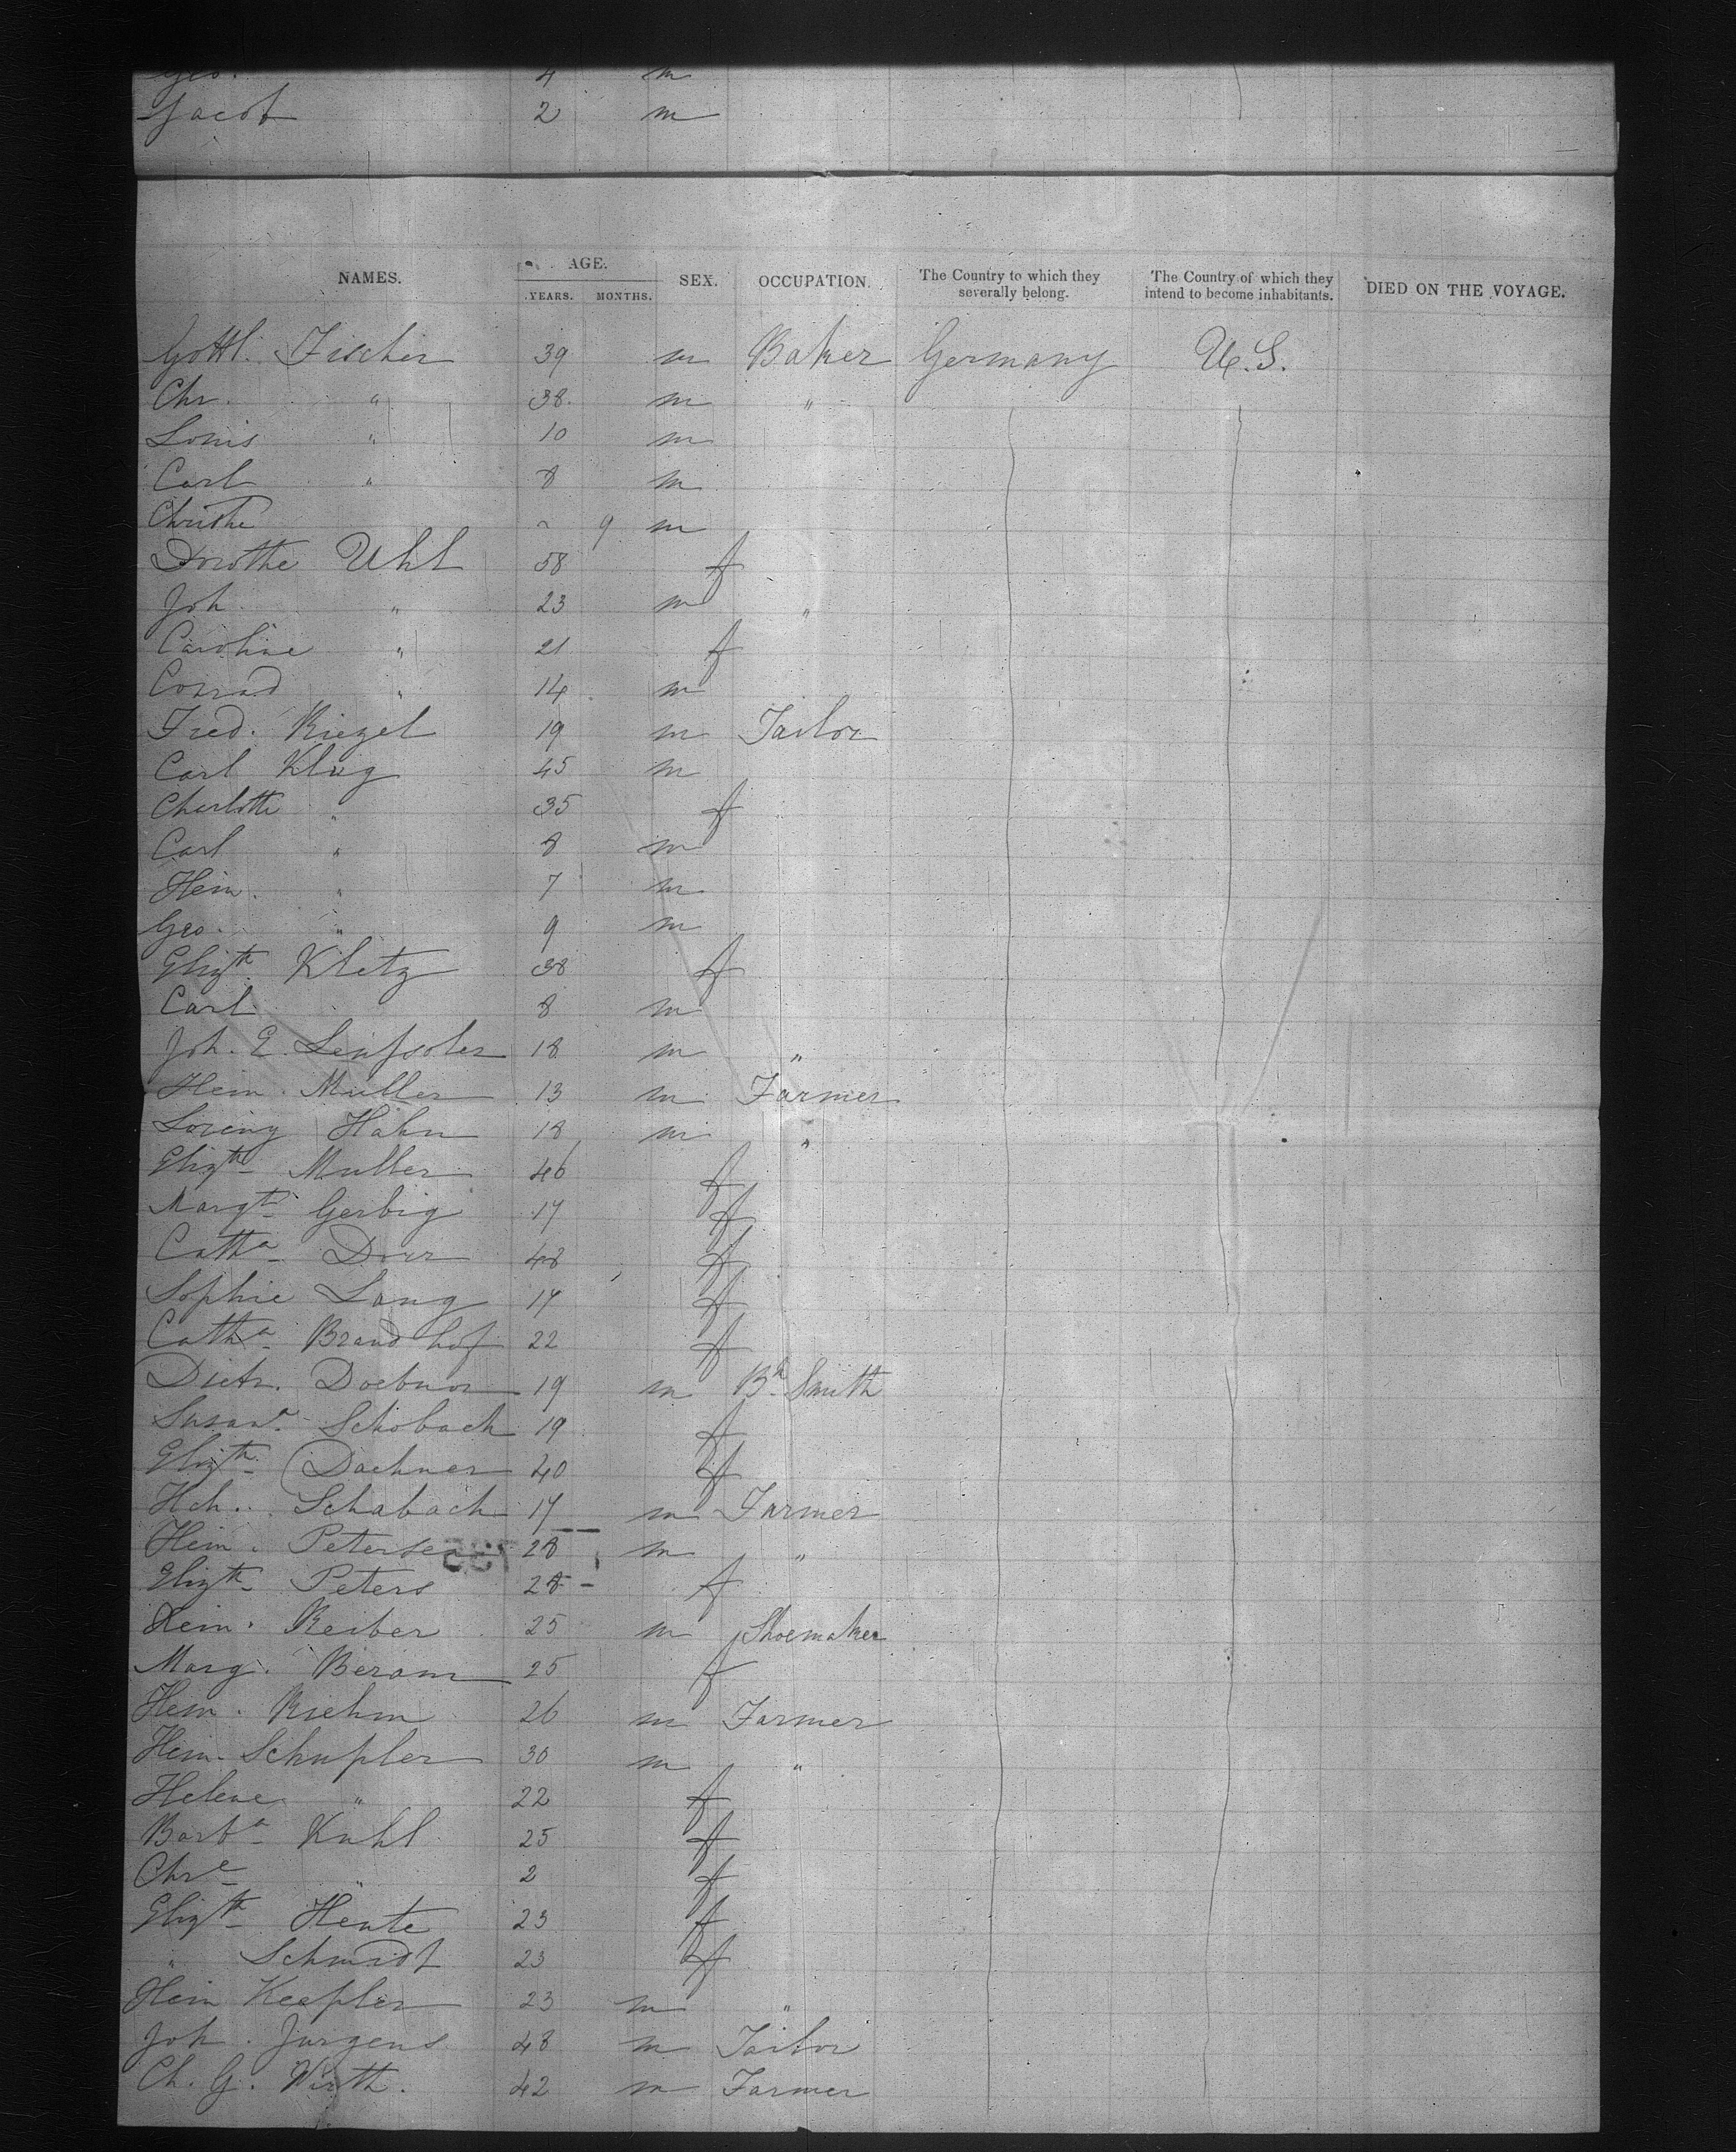 Geo. 4 m
Jacob 2 m
NAMES. AGE. YEARS. MONTHS. SEX. OCCUPATION. The Country to which they severally belong. The Country of which they intend to become inhabitants. DIED ON THE VOYAGE.
Gottl. Fischer 39 m Baker Germany U.S.
Chr. " 38 m "
Louis " 10 m
Carl " 8 m
Christe 9 m
Dorothe Uhl 58 f
Joh. " 23 m "
Caroline " 21 f
Conrad " 14 m
Fred. Riegel 19 m Tailor
Carl Klug 45 m
Charlotte " 35 f
Carl " 8 m
Hein. " 7 m
Geo. " 9 m
Elizth Kletz 38 f
Carl 8 m
Joh. E. 18 m "
Hein. Muller 13 m Farmer
Lorenz Hahn 18 m "
Elizth Muller 46 f
Margt Gerbig 17 f
Catha Dorr 48 f
Sophie Lang 17 f
Catha Brandhof 22 f
Dietr. Doebner 19 m Bk Smith
Susane Schobach 19 f
Elizth Dachner 40 f
Hch. Schabach 17 m Farmer
Hein. Petersen 28 m "
Elizth Peters 28 f
Hein. Reiber 25 m Shoemaker
Marg. Beram 25 f
Hein. Riehm 26 m Farmer
Hein. Schupler 30 m "
Helene " 22 f
Barba Kuhl 25 f
Chre " 2 f
Elizth Hente 23 f
" Schmidt 23 f
Hein Keepler 23 m "
Joh. Jurgens 48 m Tailor
Ch. G. Wirth. 42 m Farmer